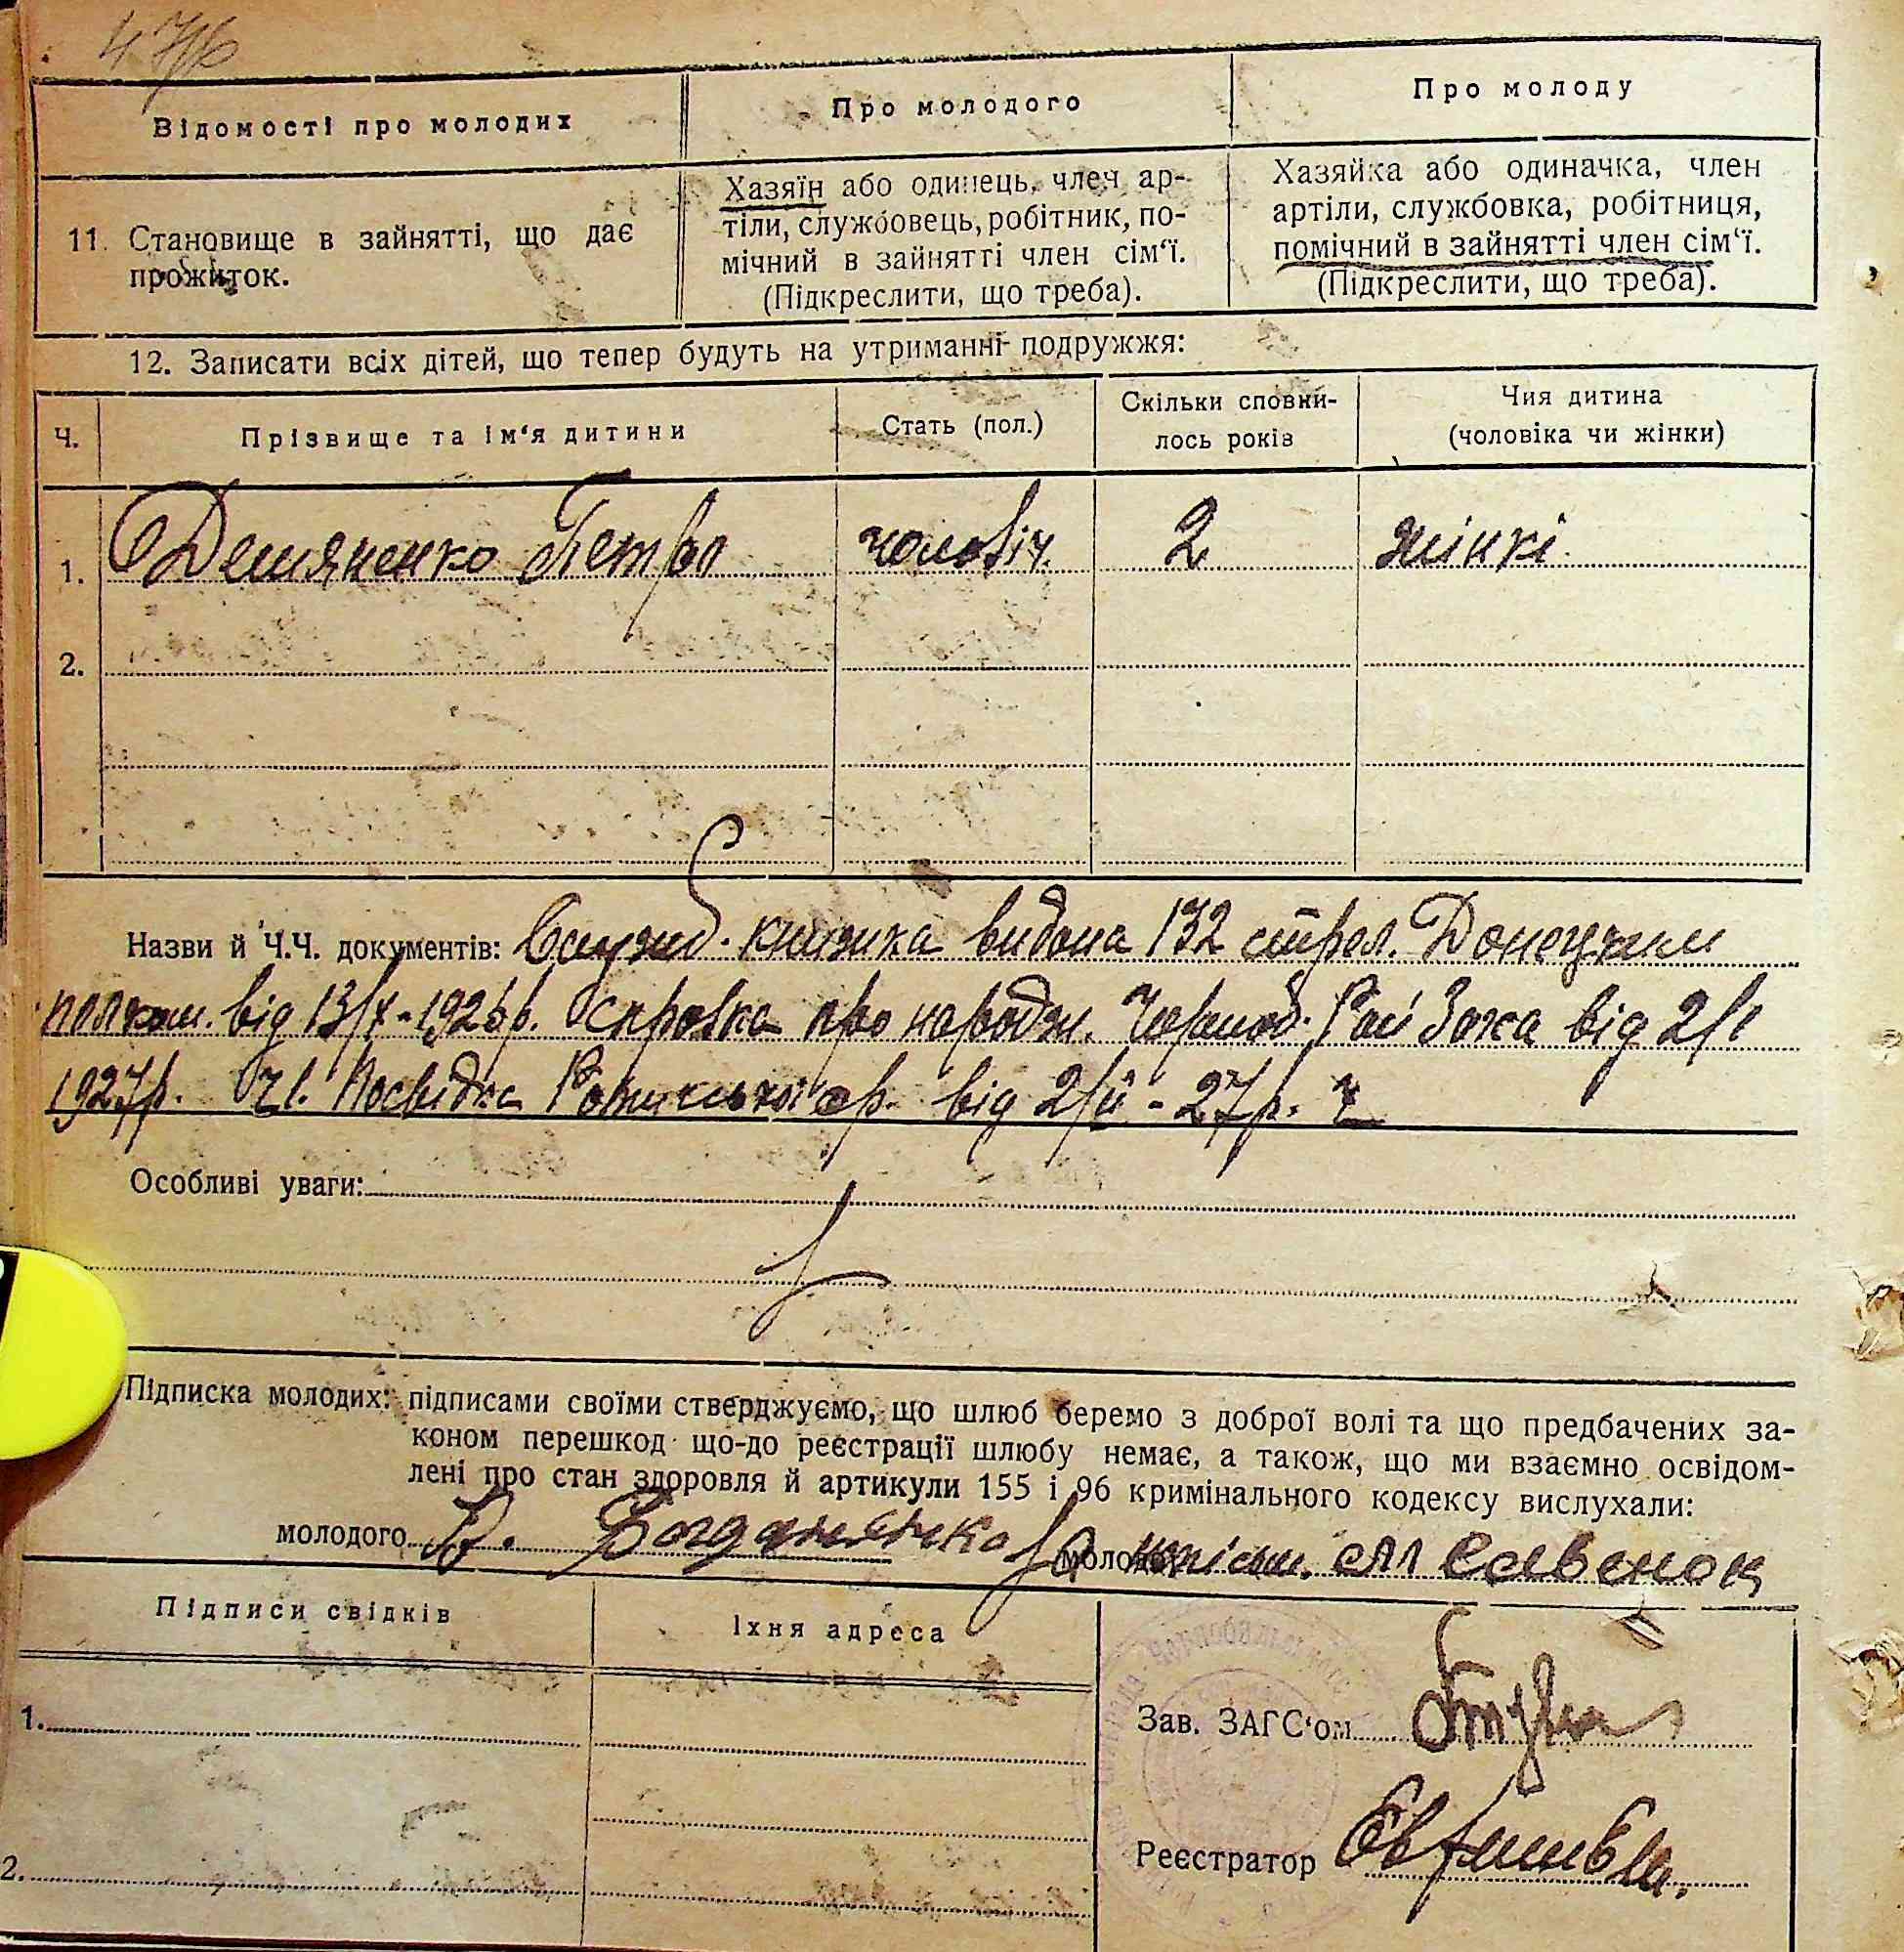 47/6
Відомості про молодих
Про молодого
Про молоду
11. Становище в зайнятті, що дає
прожиток.
Хазяїн або одинець, член ар-
тіли, службовець, робітник, по-
мічний в зайнятті член сім'ї.
(Підкреслити, що треба).
Хазяйка або одиначка, член
артіли, службовка, робітниця,
помічний в зайнятті член сім'ї.
(Підкреслити, що треба).
12. Записати всіх дітей, що тепер будуть на утриманні подружжя:
Ч.
Прізвище та ім'я дитини
Стать (пол.)
Скільки сповни-
лось років
Чия дитина
(чоловіка чи жінки)
1. Демяненко Петро чоловіч. 2 жінкі
2.
Назви й Ч.Ч. документів: книжка видана 132 стрел. Донецким
полком. від 13/X-1926р. справка про народж. від 2/I
1927р. Ч1. Посвідка від 2/II-27р. Ч
Особливі уваги:
Підписка молодих: підписами своїми стверджуємо, що шлюб беремо з доброї волі та що предбачених за-
коном перешкод що-до реєстрації шлюбу немає, а також, що ми взаємно освідом-
лені про стан здоровля й артикули 155 і 96 кримінального кодексу вислухали:
молодого молодої
Підписи свідків
Їхня адреса
1.
2.
Зав. ЗАГС'ом
Реєстратор